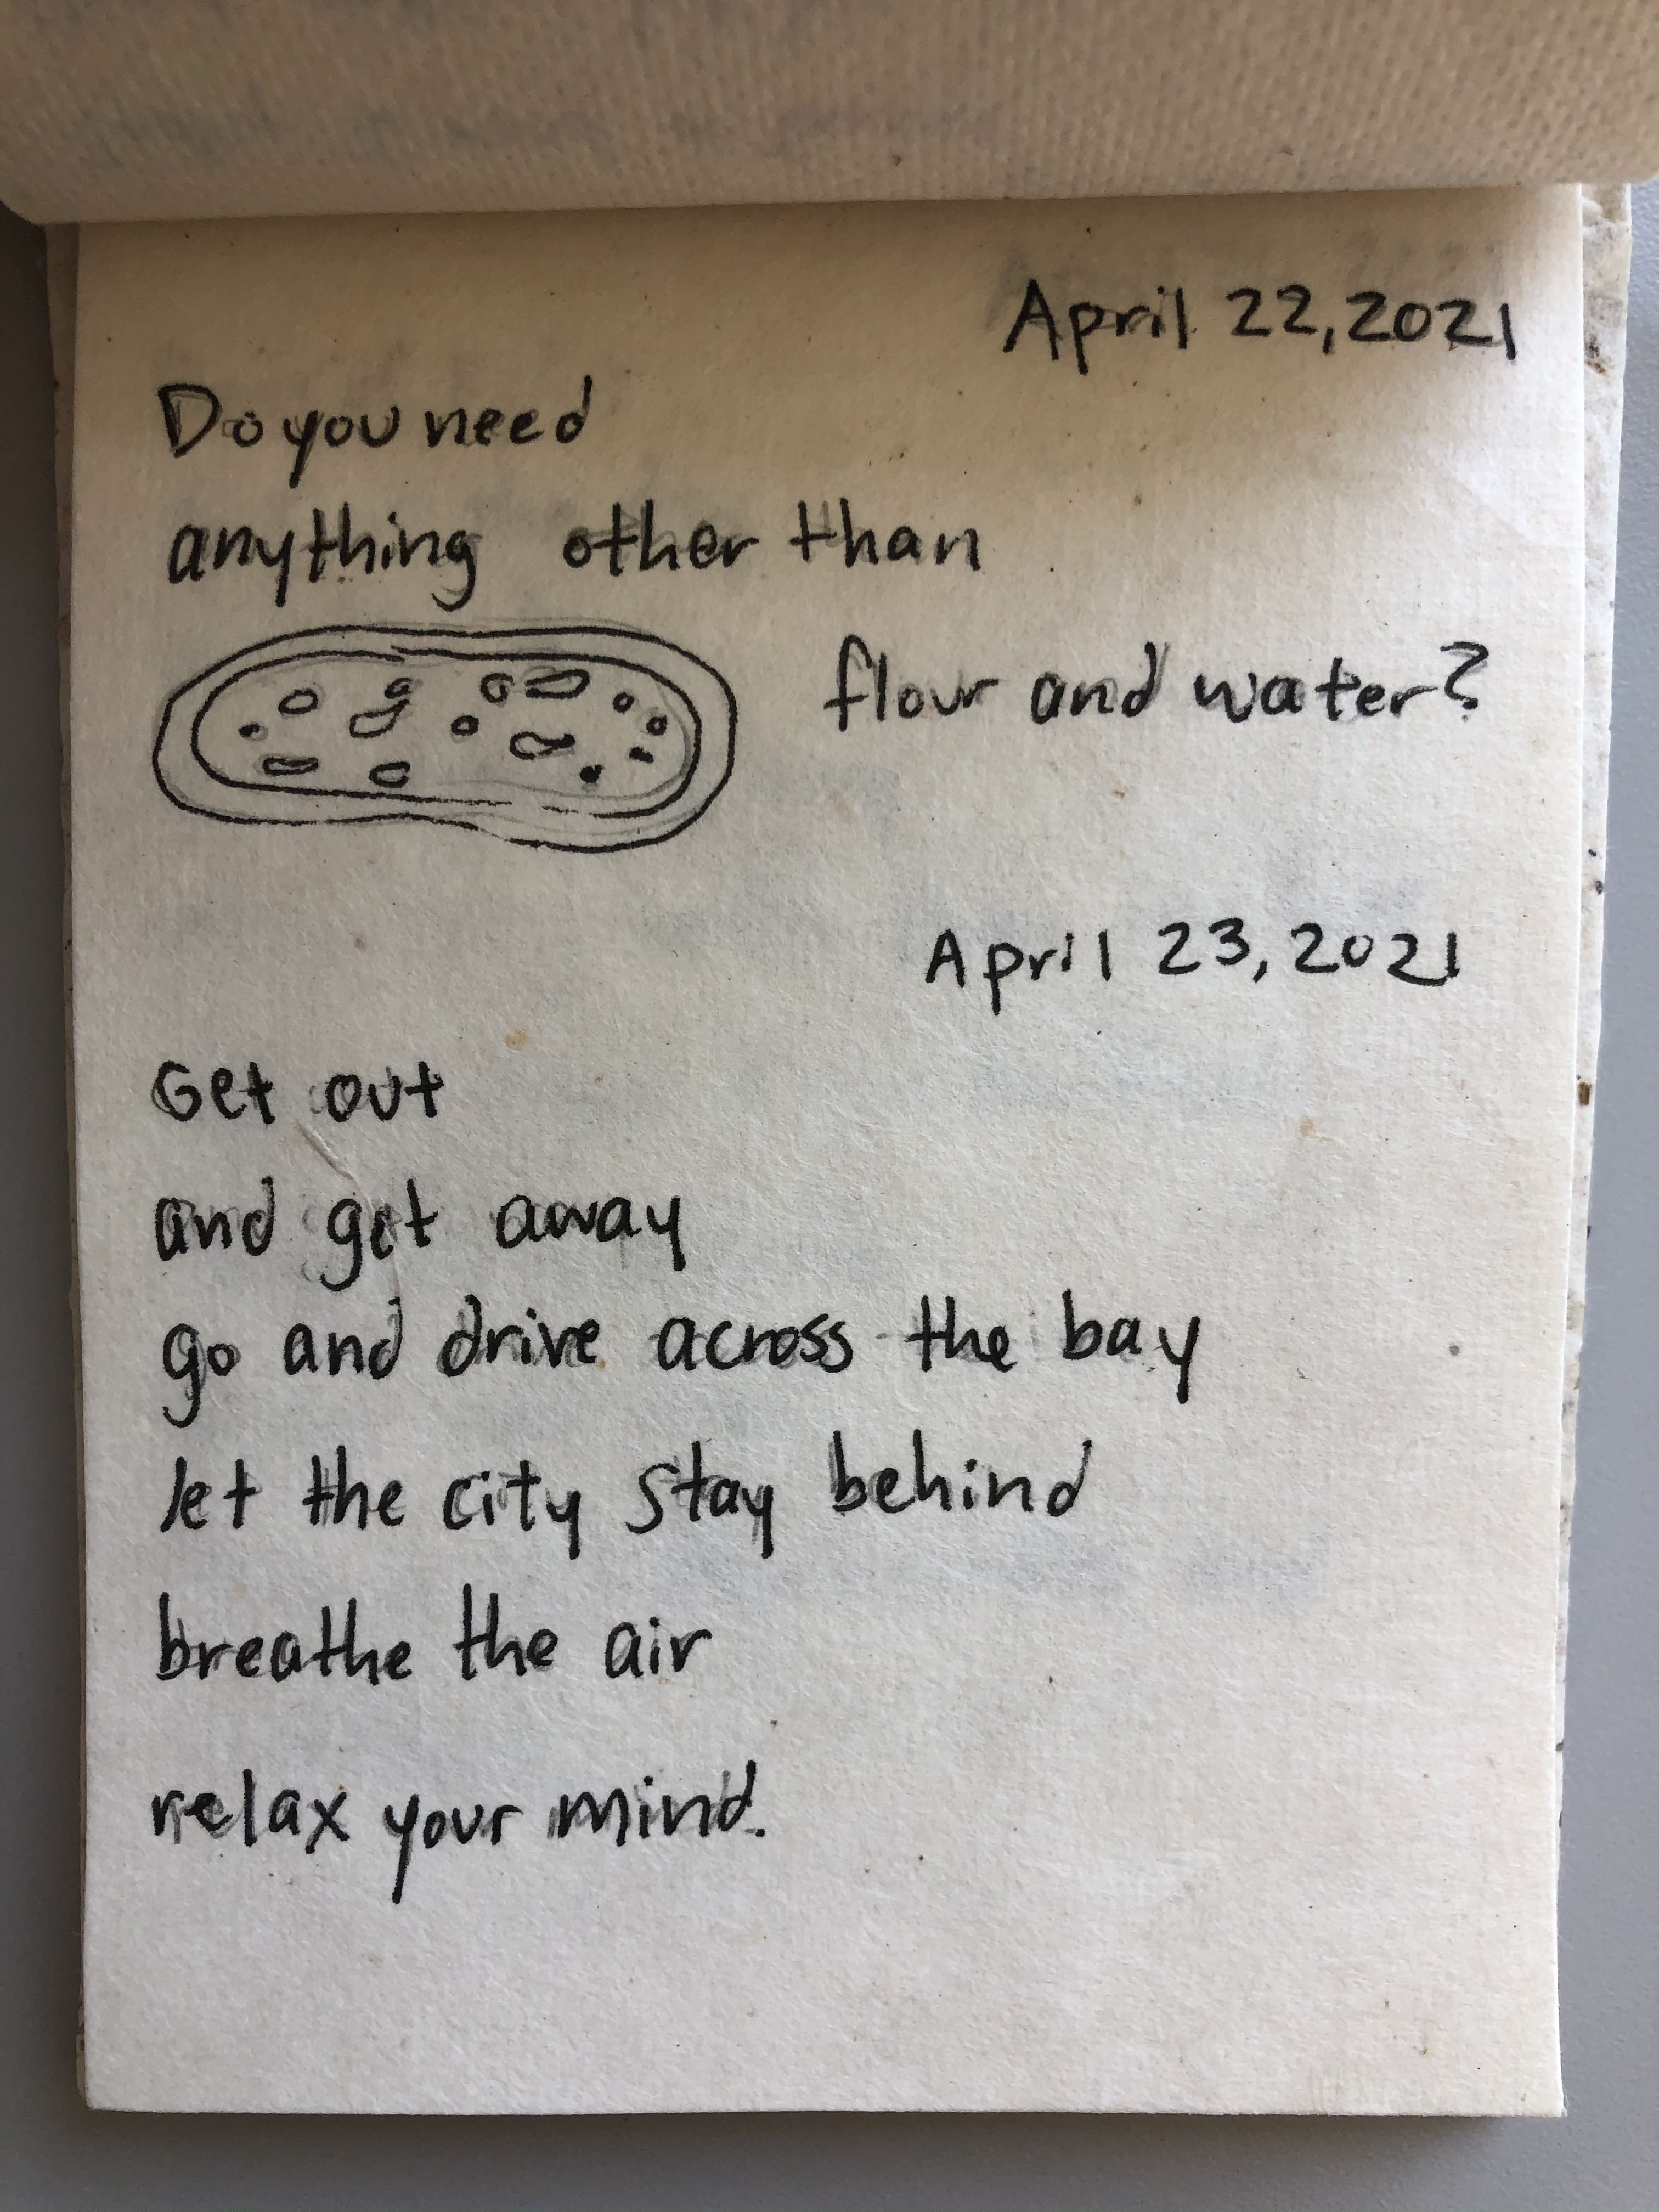 April 22, 2021
Do you need
anything other than
flour and water?
April 23, 2021
Get out
and get away
go and drive across the bay
let the city stay behind
breathe the air
relax your mind.